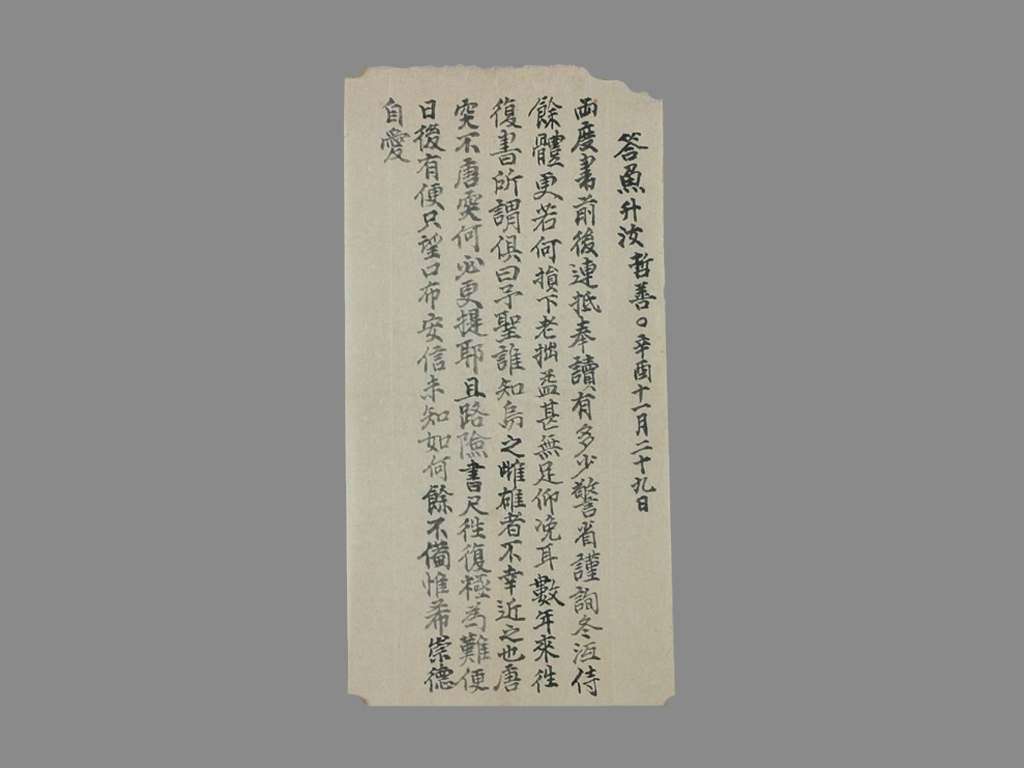 答魚升汝 哲善○辛酉十一月二十九日
兩度書前後連抵奉讀有多少警省謹詢冬沍侍
餘體更若何損下老拙益甚無足仰浼耳數年來往
復書所謂俱曰予聖誰知烏之雌雄者不幸近之也唐
突不唐突何必更提耶且路險書尺往復極爲難便
日後有便只望口布安信未知如何餘不備惟希崇德
自愛